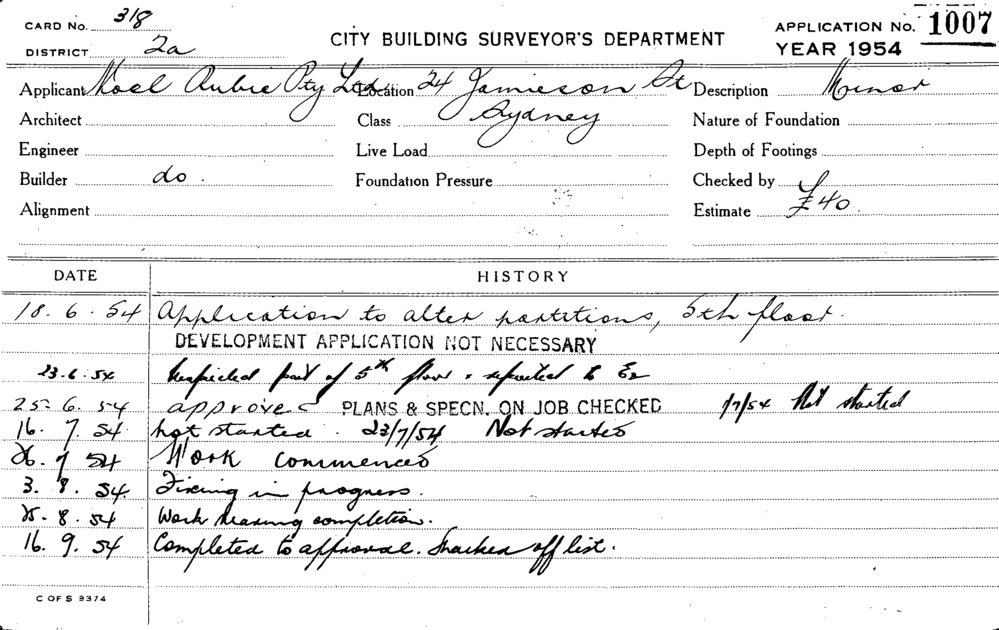 CARD NO. 318
DISTRICT 2a
CITY BUILDING SURVEYOR'S DEPARTMENT
APPLICATION NO. 1007
YEAR 1954
Applicant Noel Rubie Pty Ltd Location 24 Jamieson St Description Minor
Architect Class Sydney Nature of Foundation
Engineer Live Load Depth of Footings
Builder do. Foundation Pressure Checked by
Alignment Estimate £40
DATE HISTORY
18.6.54 Application to alter partitions, 5th floor.
DEVELOPMENT APPLICATION NOT NECESSARY
23.6.54 Inspected part of 5th floor & reported to
25.6.54 approved PLANS & SPECN. ON JOB CHECKED 1/7/54 Not started
16.7.54 not started. 23/7/54 Not started
26.7.54 Work commenced
3.8.54 Fixing in progress.
8.54 Work nearing completion.
16.9.54 Completed to approval. Marked off list.
C OF S 9374